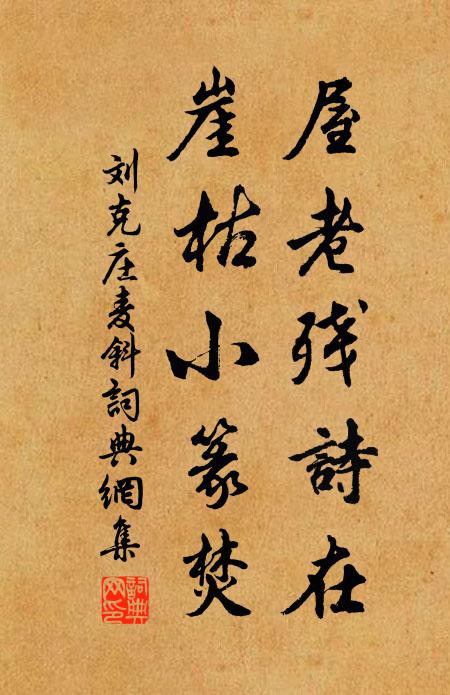 屋老残詩在
崖枯小篆焚
刘克庄麦斜詞典網集
詞典網印